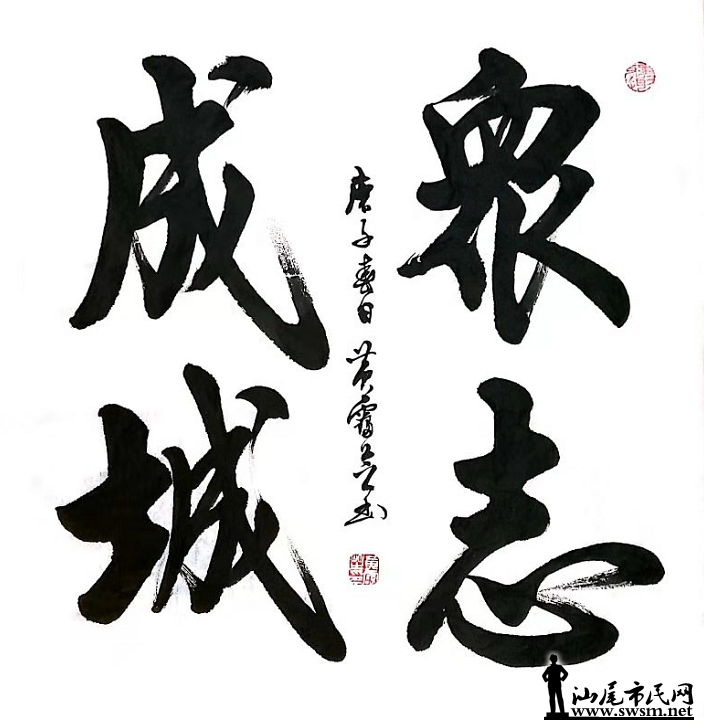 眾志
成城
庚子春日 黄
汕尾市民网
www.swsm.net